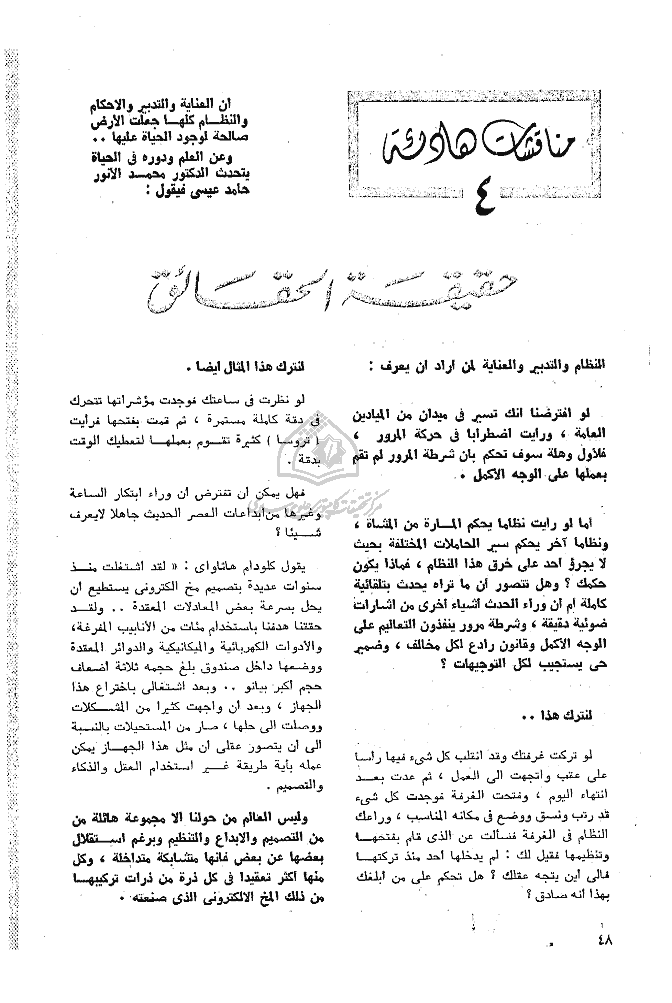 مناقشات هادئة
٤
ان العناية والتدبير والاحكام
والنظام كلها جعلت الأرض
صالحة لوجود الحياة عليها ..
وعن العلم ودوره فى الحياة
يتحدث الدكتور محمد الأنور
حامد عيسى فيقول :
حقيقة الحقائق
النظام والتدبير والعناية لمن اراد ان يعرف :
لو افترضنا انك تسير فى ميدان من الميادين
العامة ، ورايت اضطرابا فى حركة المرور ،
فلاول وهلة سوف تحكم بان شرطة المرور لم تقم
بعملها على الوجه الأكمل .
أما لو رايت نظاما يحكم المارة من المشاة ،
ونظاما آخر يحكم سير الحاملات المختلفة بحيث
لا يجرؤ احد على خرق هذا النظام ، فماذا يكون
حكمك ؟ وهل تتصور أن ما تراه يحدث بتلقائية
كاملة أم أن وراء الحدث أشياء اخرى من اشارات
ضوئية دقيقة ، وشرطة مرور ينفذون التعاليم على
الوجه الأكمل وقانون رادع لكل مخالف ، وضمير
حى يستجيب لكل التوجيهات ؟
لنترك هذا ..
لو تركت غرفتك وقد انقلب كل شىء فيها رأسا
على عقب واتجهت الى العمل ، ثم عدت بعد
انتهاء اليوم ، وفتحت الغرفة فوجدت كل شىء
قد رتب ونسق ووضع فى مكانه المناسب ، وراعك
النظام فى الغرفة فسألت عن الذى قام بفتحها
وتنظيمها فقيل لك : لم يدخلها احد منذ تركتها
فالى أين يتجه عقلك ؟ هل تحكم على من أبلغك
بهذا أنه صادق ؟
لنترك هذا المثال ايضا .
لو نظرت فى ساعتك فوجدت مؤشراتها تتحرك
فى دقة كاملة مستمرة ، ثم قمت بفتحها فرأيت
( تروسا ) كثيرة تقوم بعملها لتعطيك الوقت
بدقة .
فهل يمكن أن تفترض أن وراء ابتكار الساعة
وغيرها من ابداعات العصر الحديث جاهلا لايعرف
شيئا ؟
يقول كلودام هاثاواى : « لقد اشتغلت منذ
سنوات عديدة بتصميم مخ الكترونى يستطيع أن
يحل بسرعة بعض المعادلات المعقدة .. ولقد
حققنا هدفنا باستخدام مئات من الأنابيب المفرغة،
والأدوات الكهربائية والميكانيكية والدوائر المعقدة
ووضعها داخل صندوق بلغ حجمه ثلاثة أضعاف
حجم أكبر بيانو .. وبعد اشتغالى باختراع هذا
الجهاز ، وبعد أن واجهت كثيرا من المشكلات
ووصلت الى حلها ، صار من المستحيلات بالنسبة
الى أن يتصور عقلى أن مثل هذا الجهاز يمكن
عمله بأية طريقة غير استخدام العقل والذكاء
والتصميم .
وليس العالم من حولنا الا مجموعة هائلة من
من التصميم والابداع والتنظيم وبرغم استقلال
بعضها عن بعض فانها متشابكة متداخلة ، وكل
منها أكثر تعقيدا فى كل ذرة من ذرات تركيبها
من ذلك المخ الالكترونى الذى صنعته .
٤٨